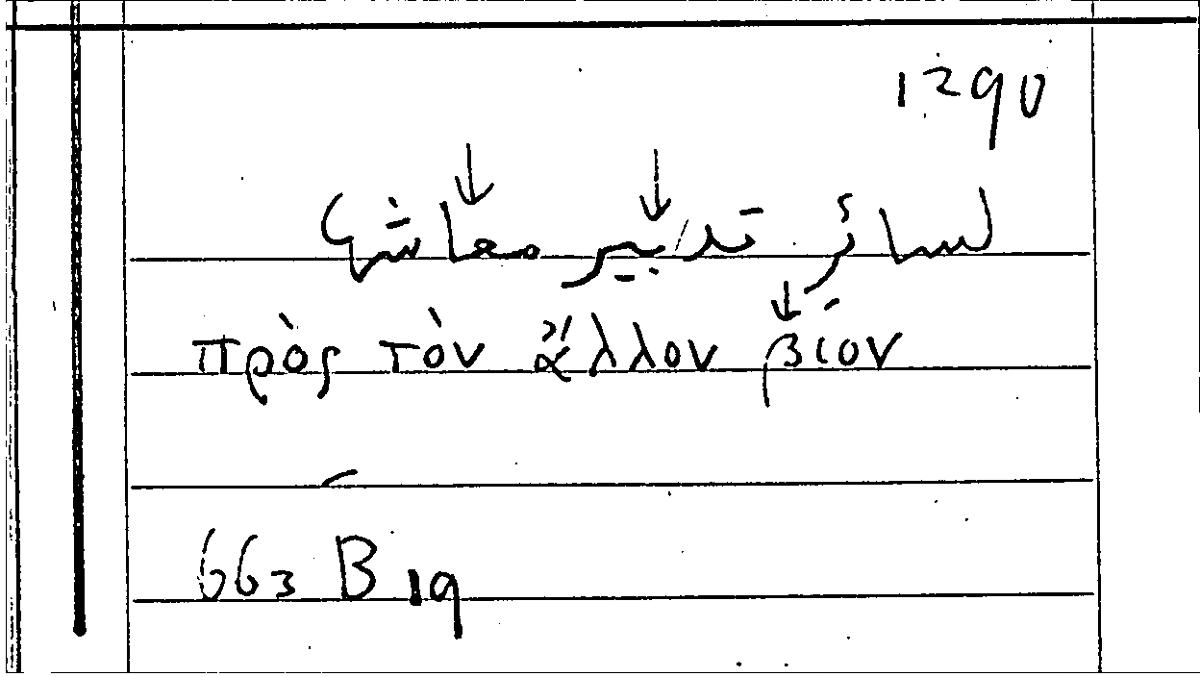 1290
لسائر تدبير معاشها
πρὸς τὸν ἄλλον βίον
663 B 19